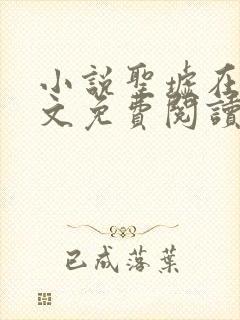 小説聖墟在
文免費閱讀
已成落葉